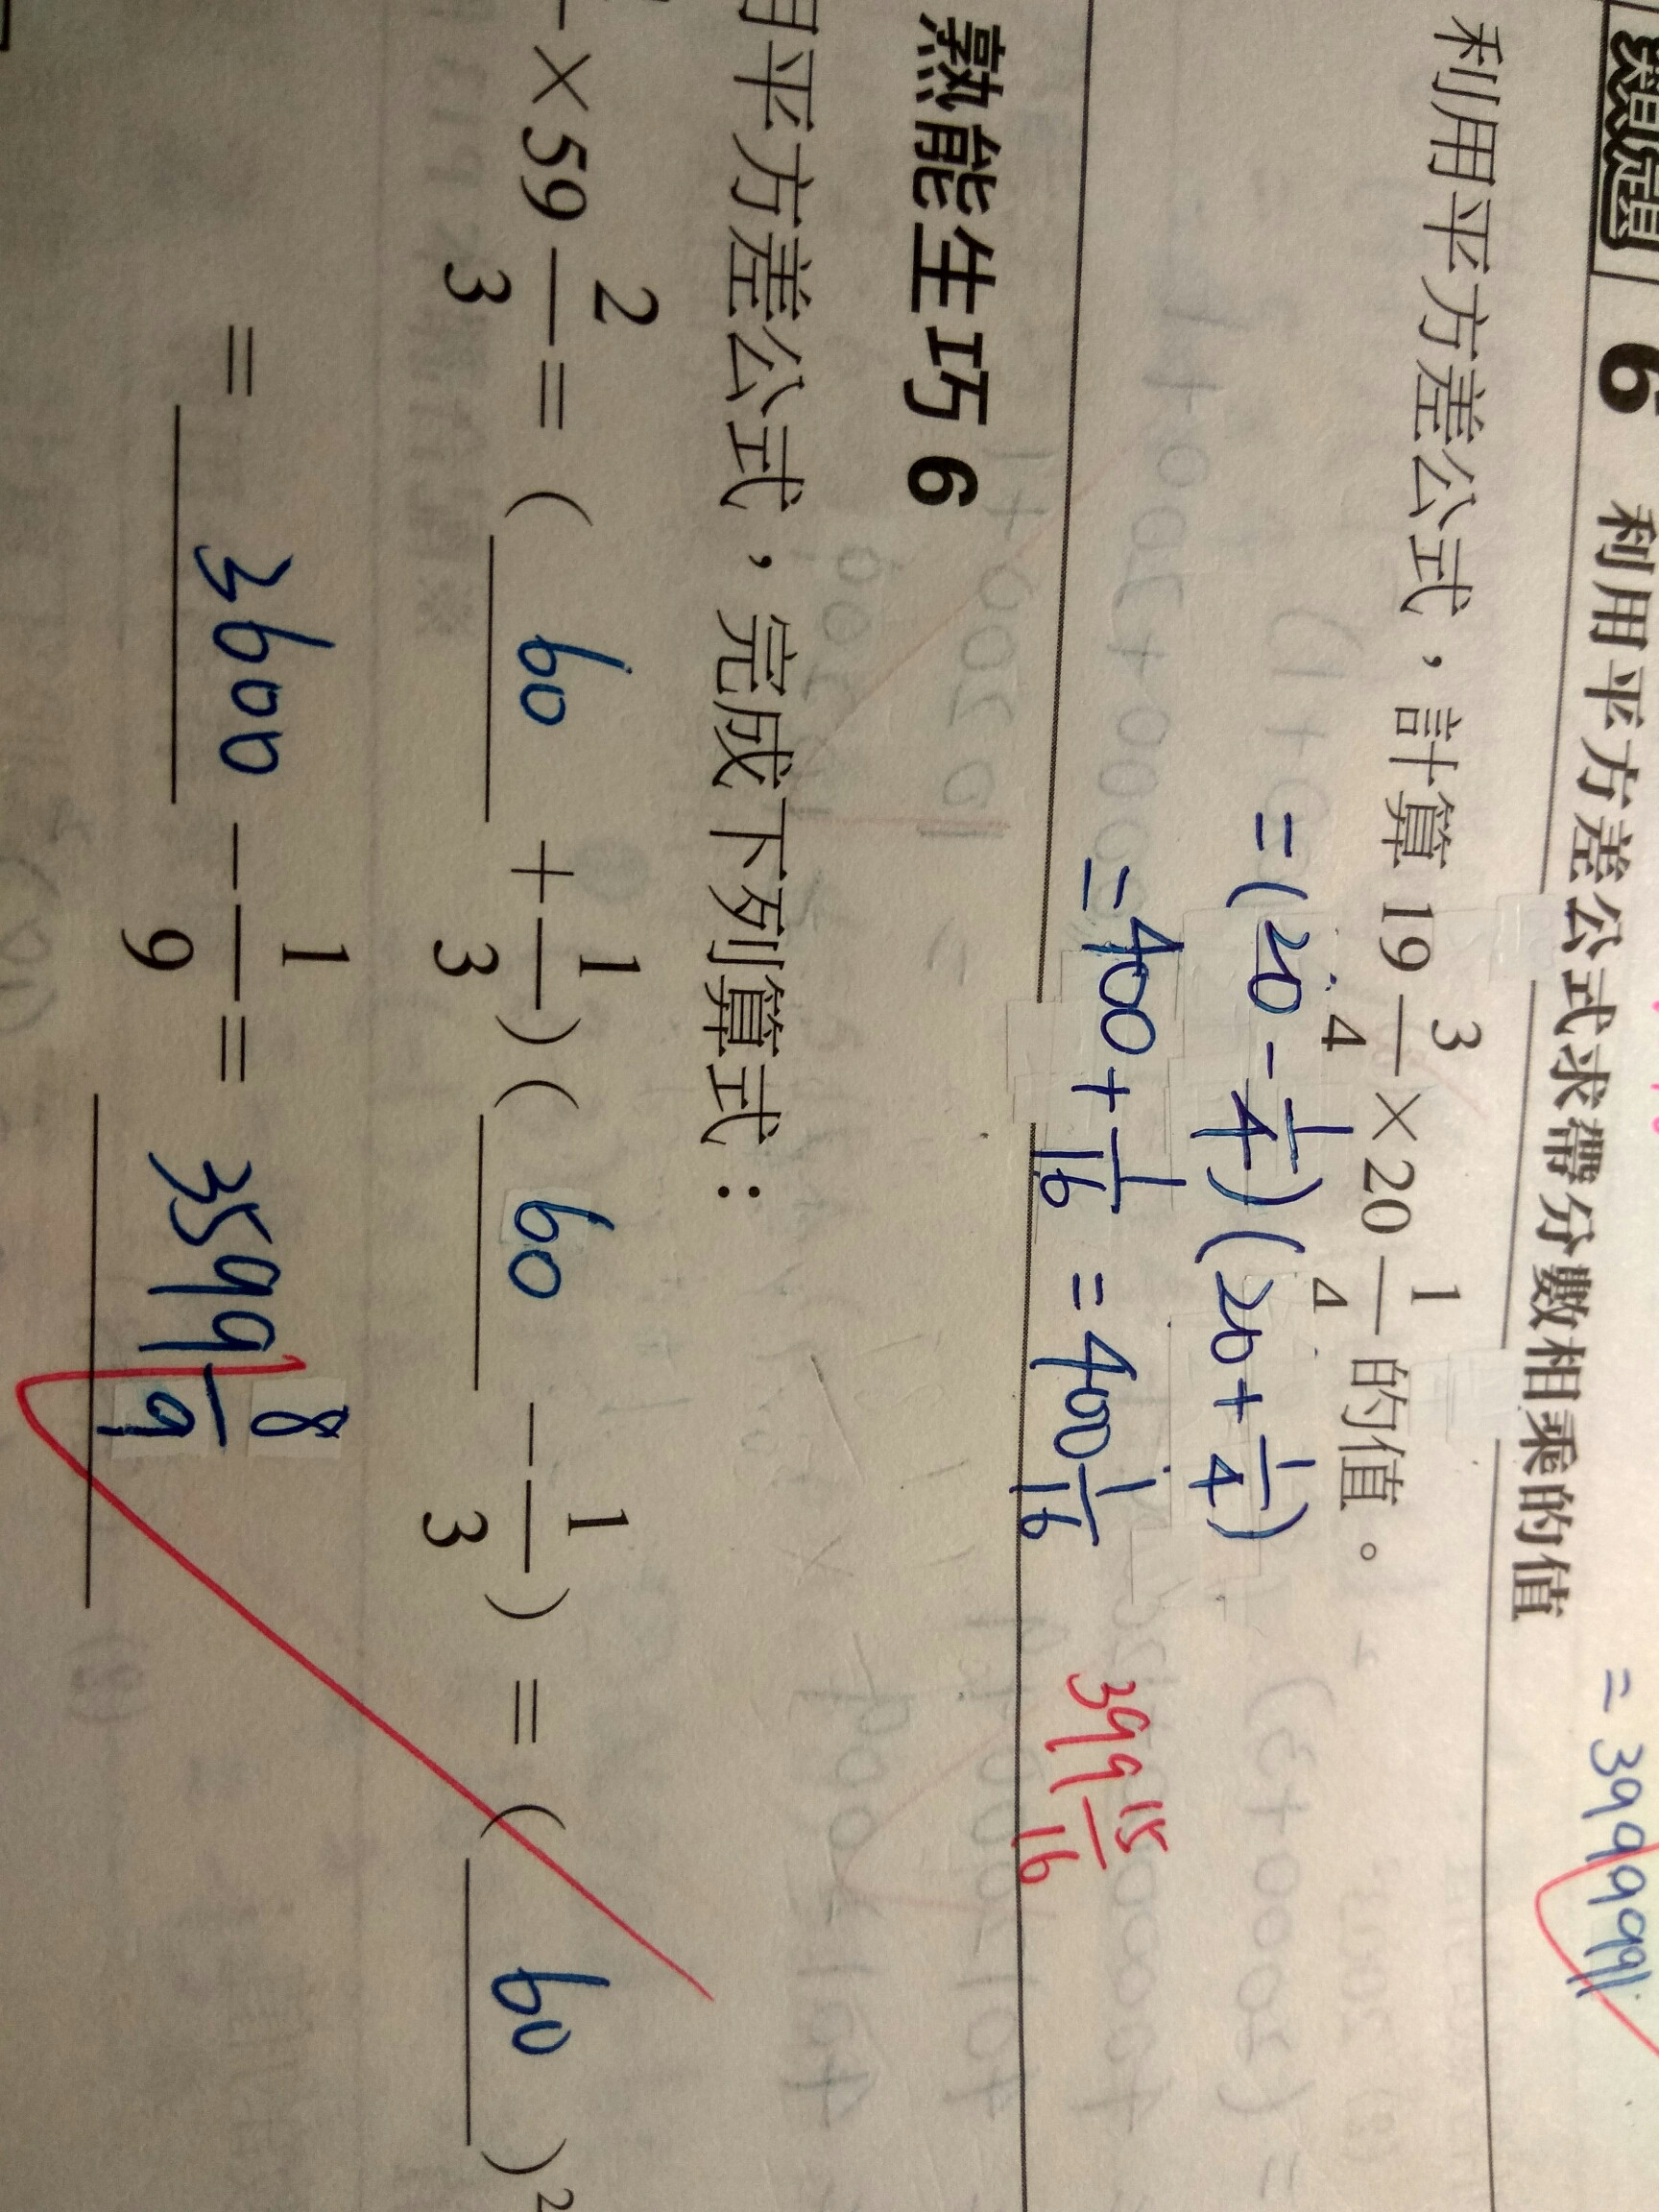 類題 6 利用平方差公式求帶分數相乘的值
= 39999991
利用平方差公式，計算 19 3/4 × 20 1/4 的值。
= (20 - 1/4) (20 + 1/4)
= 400 + 1/16 = 400 1/16
399 15/16
熟能生巧 6
用平方差公式，完成下列算式：
× 59 2/3 = ( 60 + 1/3 ) ( 60 - 1/3 ) = ( 60 )²
= 3600 - 1/9 = 3599 8/9